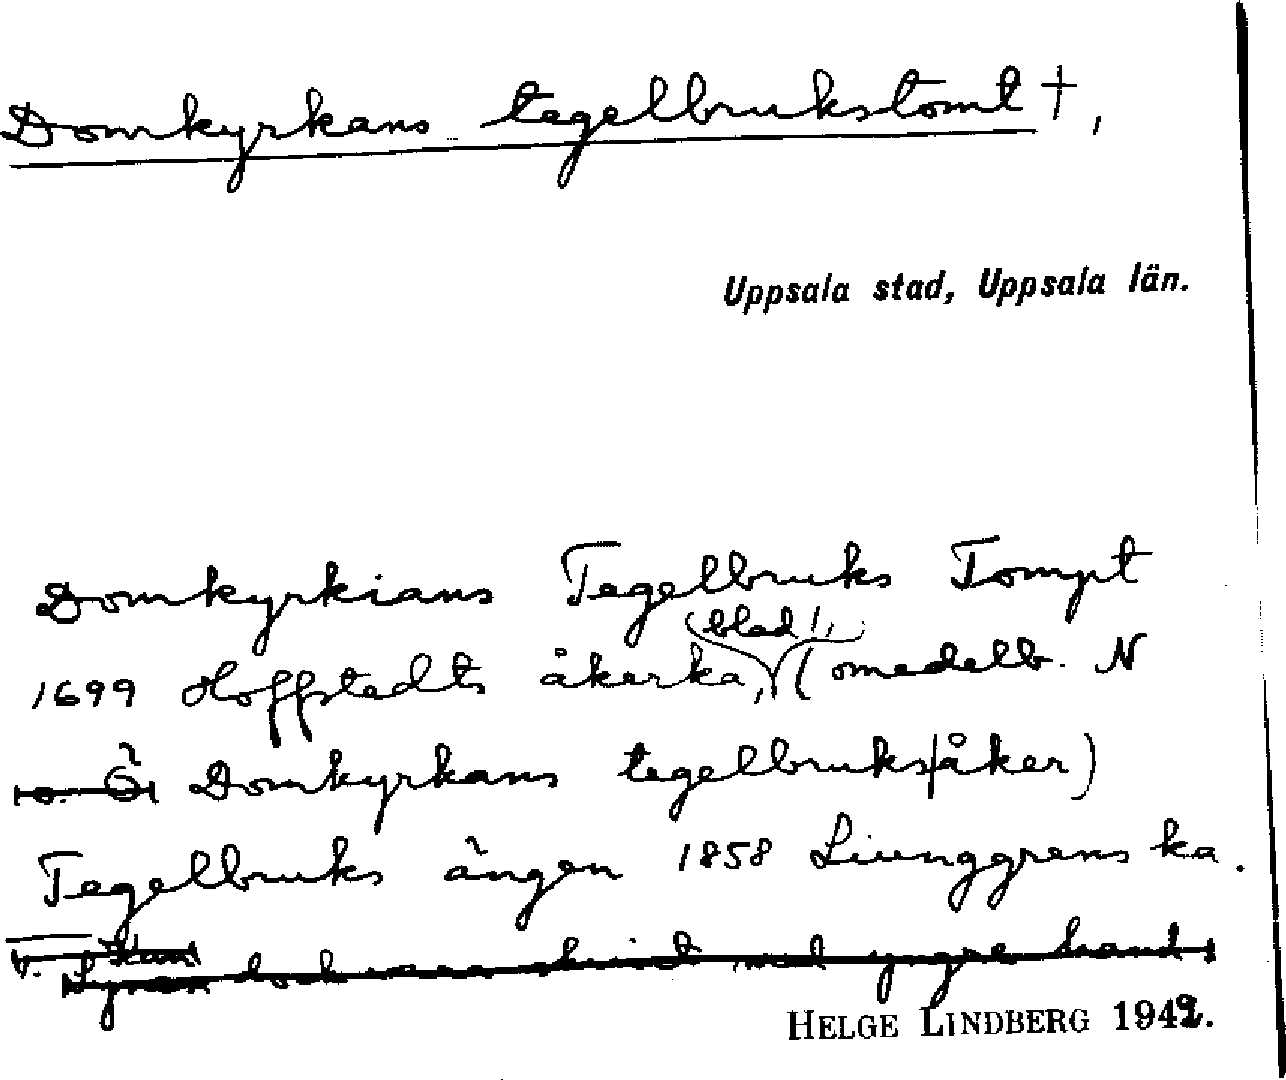 Domkyrkans tegelbrukstomt †,
Uppsala stad, Uppsala län.
Domkyrkians Tegelbruks Tompt
(blad 1,
1699 Hoffstedts åkerka, (omedelb. N
o. Ö Domkyrkans tegelbruks|åker)
Tegelbruks ängen 1858 Liunggrens ka.
kan
Synes dock vara skrivet med yngre hand
HELGE LINDBERG 1942.